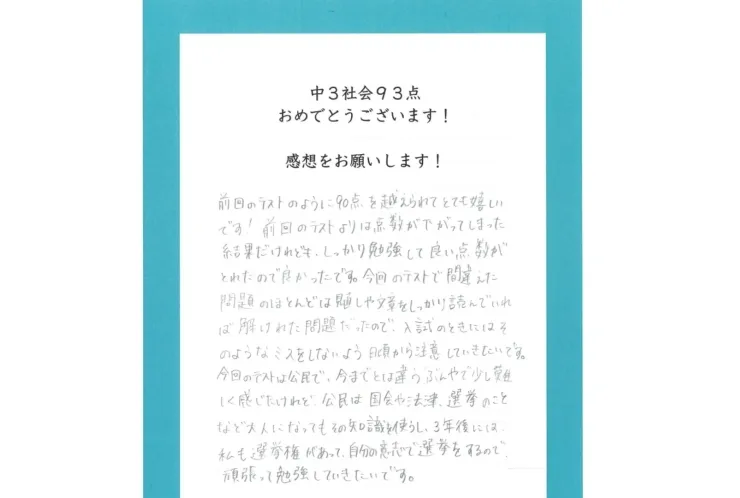 中３社会９３点
おめでとうございます！
感想をお願いします！
前回のテストのように90点を越えられてとても嬉しい
です！前回のテストよりは点数が下がってしまった
結果だけれども、しっかり勉強して良い点数が
とれたので良かったです。今回のテストで間違えた
問題のほとんどは見直しや文章をしっかり読んでいれ
ば解けれた問題だったので、入試のときにはそ
のようなミスをしないよう日頃から注意していきたいです。
今回のテストは公民で、今までとは違うぶんやで少し難
しく感じたけれど、公民は国会や法津、選挙のこと
など大人になってもその知識を使うし、3年後には、
私も選挙権があって、自分の意志で選挙をするので、
頑張って勉強していきたいです。